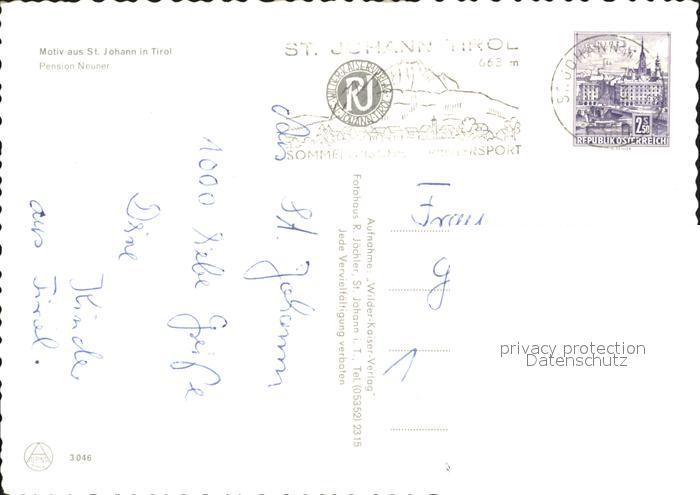 Motiv aus St. Johann in Tirol
Pension Neuner
ST. JOHANN TIROL
663 m
SOMMERFRISCHE WINTERSPORT
2.50
REPUBLIK ÖSTERREICH
aus
St. Johann
1000 liebe Grüße
Deine
Kinder
aus Tirol.
Aufnahme: „Wilder-Kaiser-Verlag"
Fotohaus R. Jöchler, St. Johann i. T., Tel. (05352) 2315
Jede Vervielfältigung verboten
Frau
privacy protection
Datenschutz
3.046